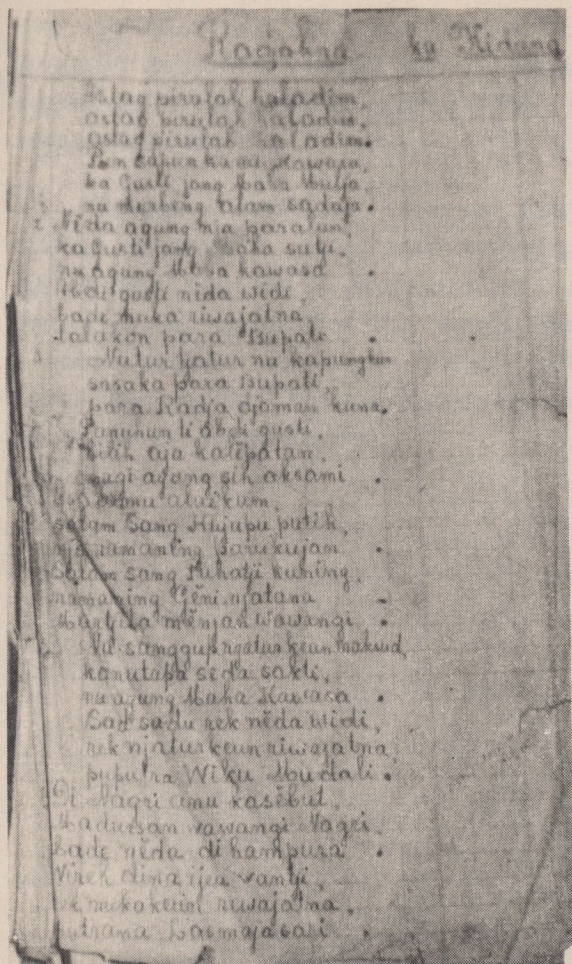 Ragahna ku Kidung
Astag pirulah haladim,
astag pirulah haladim,
astag pirulah haladim.
Pun sapun kanu Kawasa,
ka Gusti jang Maha Mulja,
nu alam sadaja.
2. Nĕda agung nja paralun,
ka Gusti jang Maha sutji,
nu agung Maha kawasa.
Abdi gusti nĕda widi,
bade muka riwajatna,
lalakon para Bupati.
3. Nutur katur nu kapungkur
sasaka para Bupati,
para Radja djaman kuna.
Panuhun ti abdi gusti,
bilih aja kalĕpatan,
mugi agung sih aksami.
alaikum,
salam Sang putih,
Salam Sang kuning,
Gĕni njatana
mĕnjan wawangi.
Nu sanggup ngaturkeun maksud,
kanu tapa seda sakti,
nu agung Maha Kawasa.
sadu rek nĕda widi,
rek njaturkeun riwajatna,
puputra Wiku Mudali.
Di Nagri anu kasĕbut,
wawangi Nagri,
bade nĕda di hampura.
dina ijeu wantji,
rek mukakeun riwajatna,
putrana Lasmajasari.